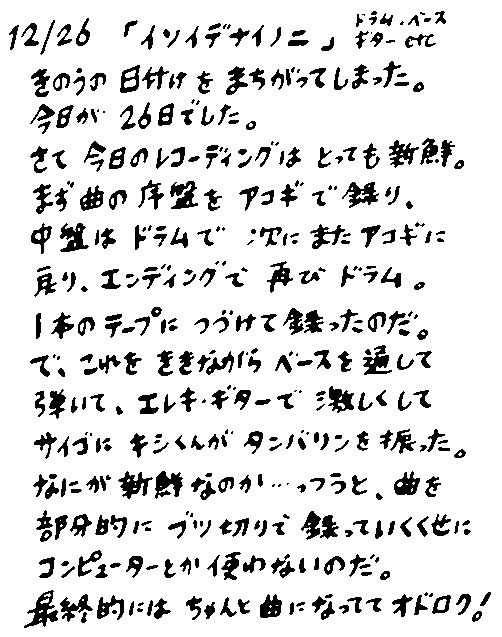 12/26 「イソイデナイノニ」 ドラム・ベース
ギター etc
きのうの日付けをまちがってしまった。
今日が 26日でした。
さて 今日のレコーディングは とっても新鮮。
まず曲の序盤を アコギで録り、
中盤は ドラムで 次にまたアコギに
戻り、エンディングで 再び ドラム。
1本のテープに つづけて録ったのだ。
で、これを ききながら ベースを通して
弾いて、エレキ・ギターで 激しくして
サイゴに キシくんが タンバリンを振った。
なにが新鮮なのか…っつうと、曲を
部分的に ブツ切りで 録っていくくせに
コンピューターとか使わないのだ。
最終的には ちゃんと曲になってて オドロク!